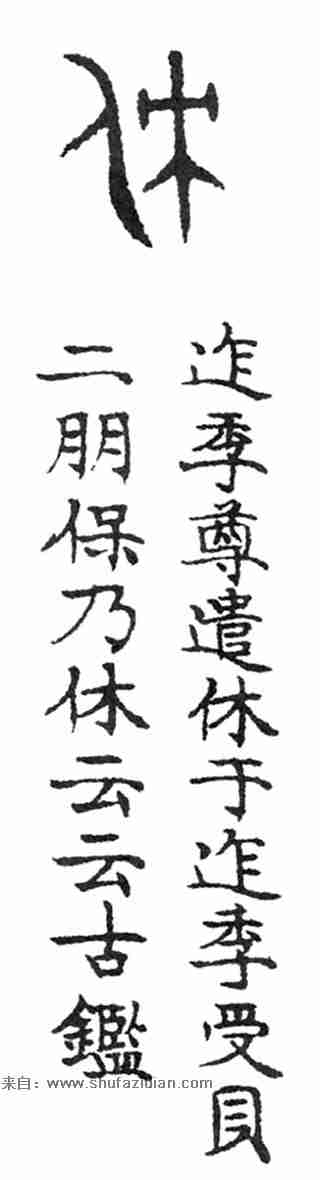 休
迮季尊遣休于迮季受貝
二朋保乃休云云古鑑
来自：www.shufazidian.com